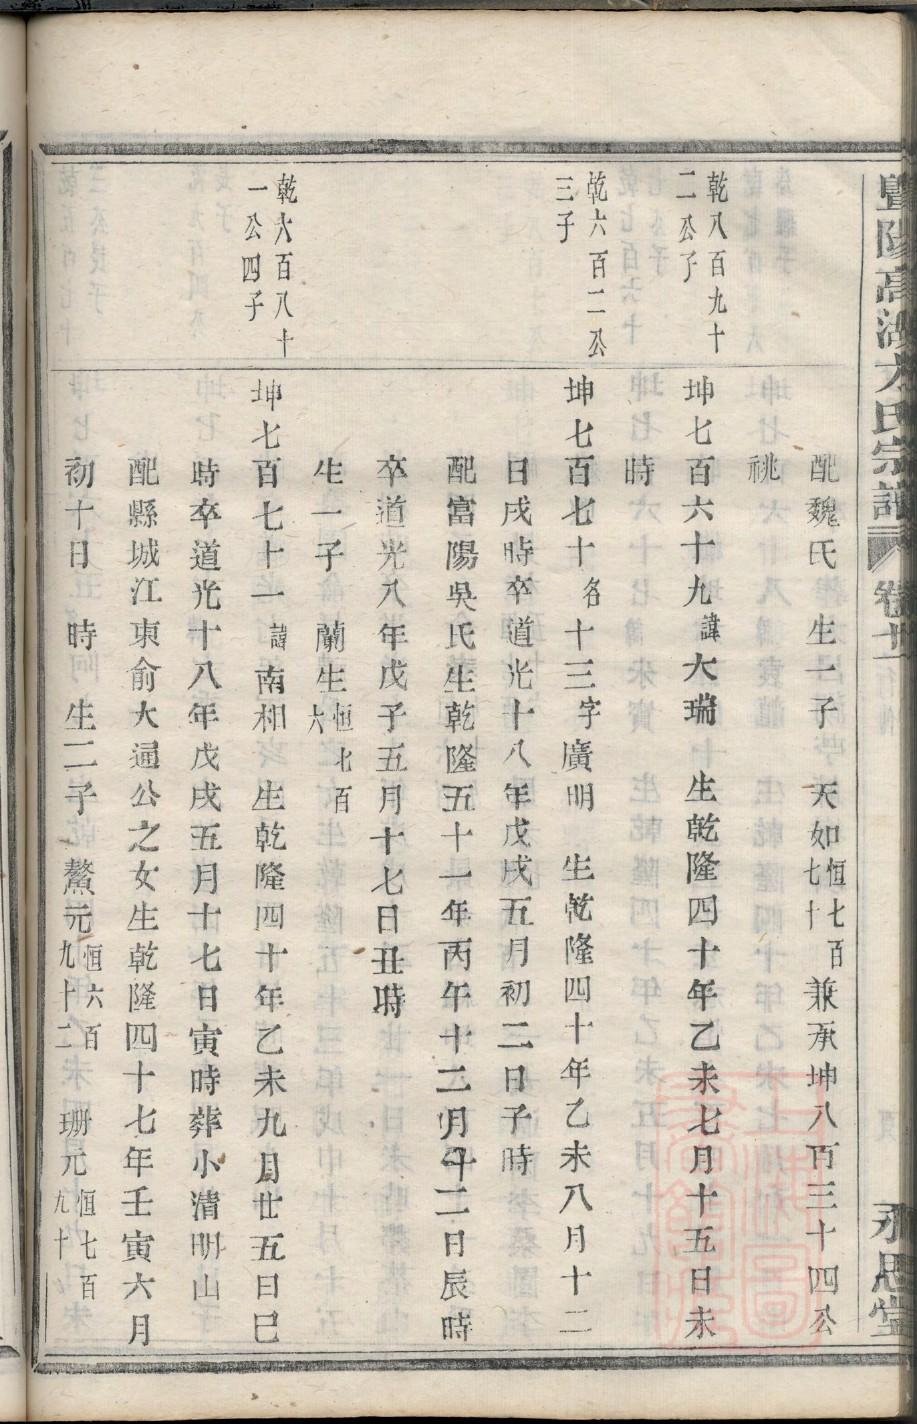 暨陽高湖方氏宗譜 卷廿 永思堂
配魏氏 生一子 天如恒七百七十 兼承坤八百三十四公
祧
乾八百九十二公子
坤七百六十九諱大瑞 生乾隆四十年乙未七月十五日未
時
乾六百二公三子
坤七百七十名十三字廣明 生乾隆四十年乙未八月十二
日戌時卒道光十八年戊戌五月初二日子時
配富陽吳氏生乾隆五十一年丙午十二月十二日辰時
卒道光八年戊子五月十七日丑時
生一子 蘭生恒七百六
乾六百八十一公四子
坤七百七十一諱南相 生乾隆四十年乙未九月廿五日巳
時卒道光十八年戊戌五月十七日寅時葬小清明山
配縣城江東俞大通公之女生乾隆四十七年壬寅六月
初十日 時 生二子 鰲元恒六百九十二 珊元恒七百九十